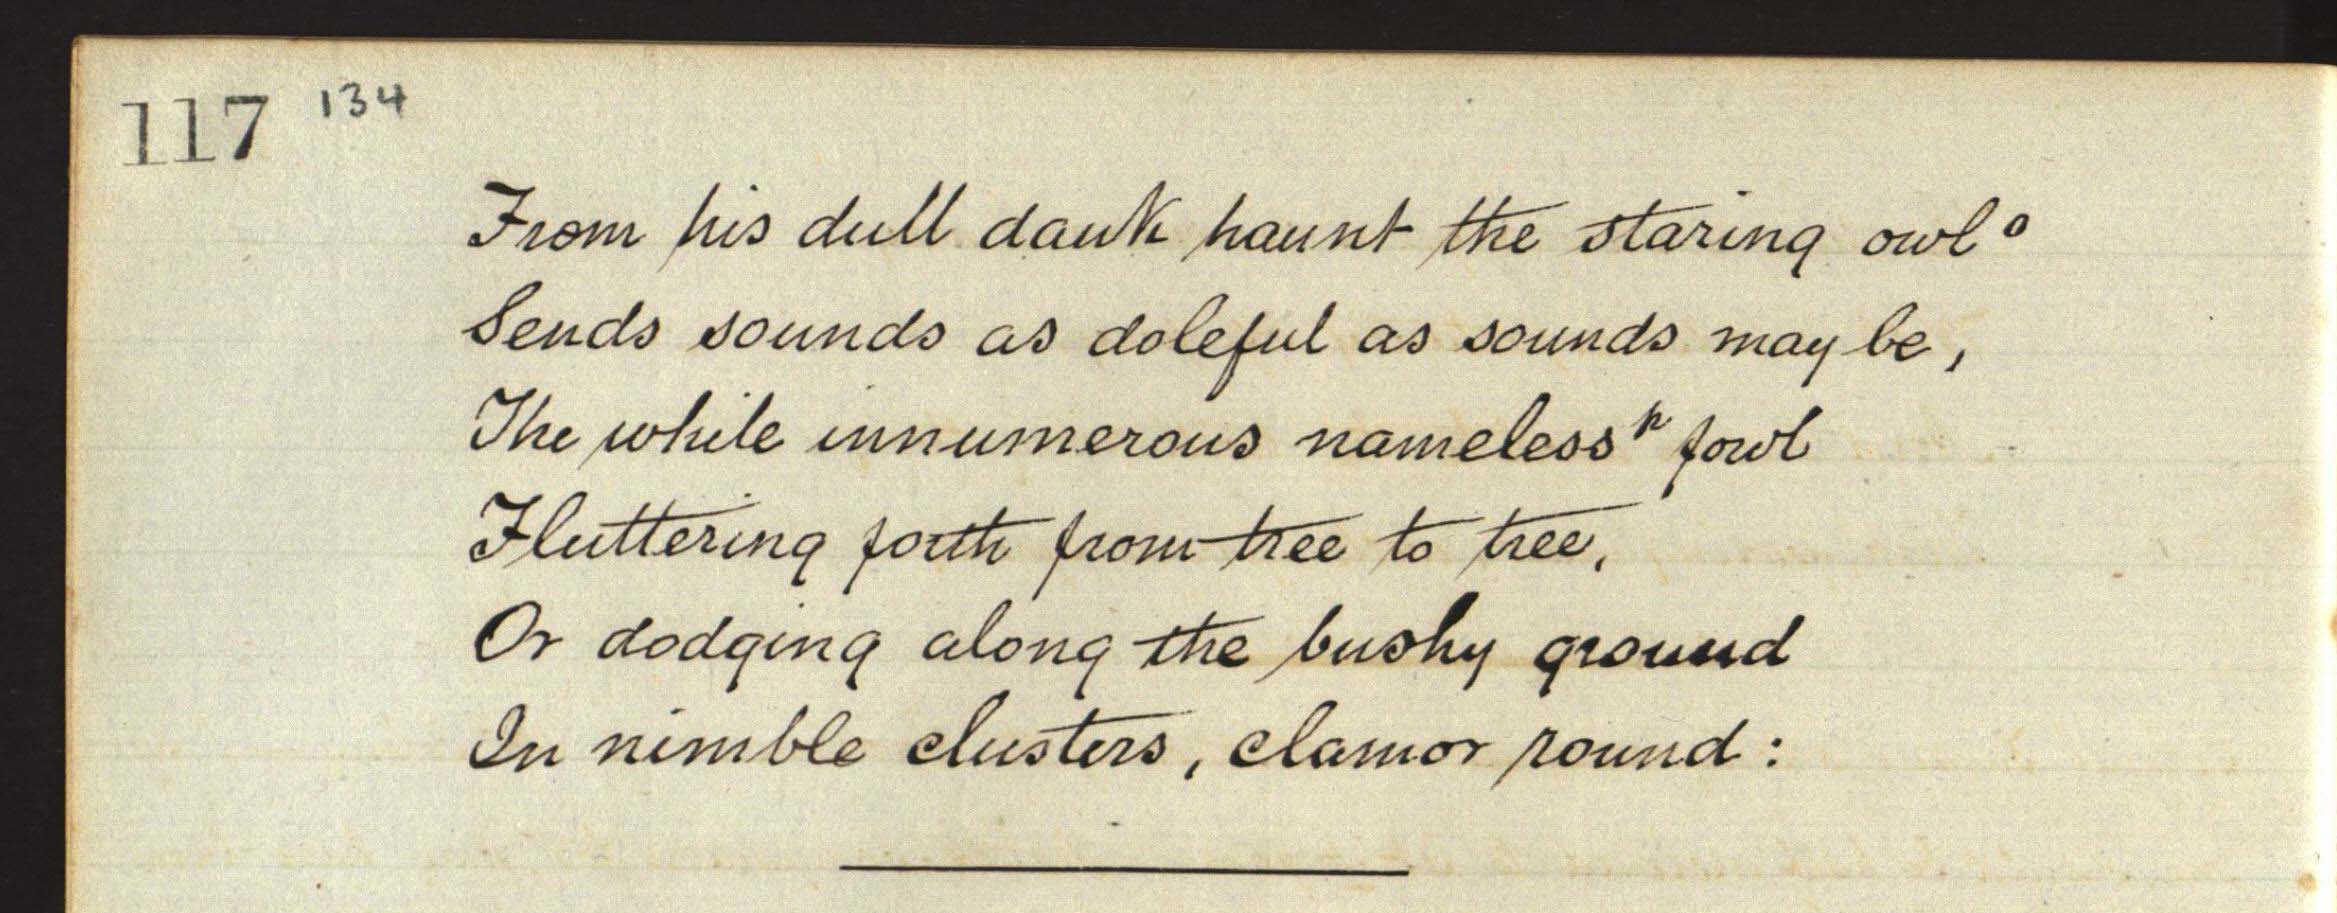 117 134
From his dull dank haunt the staring owl º
Sends sounds as doleful as sounds may be,
The while innumerous nameless ᵖ fowl
Fluttering forth from tree to tree,
Or dodging along the bushy ground
In nimble clusters, clamor round: